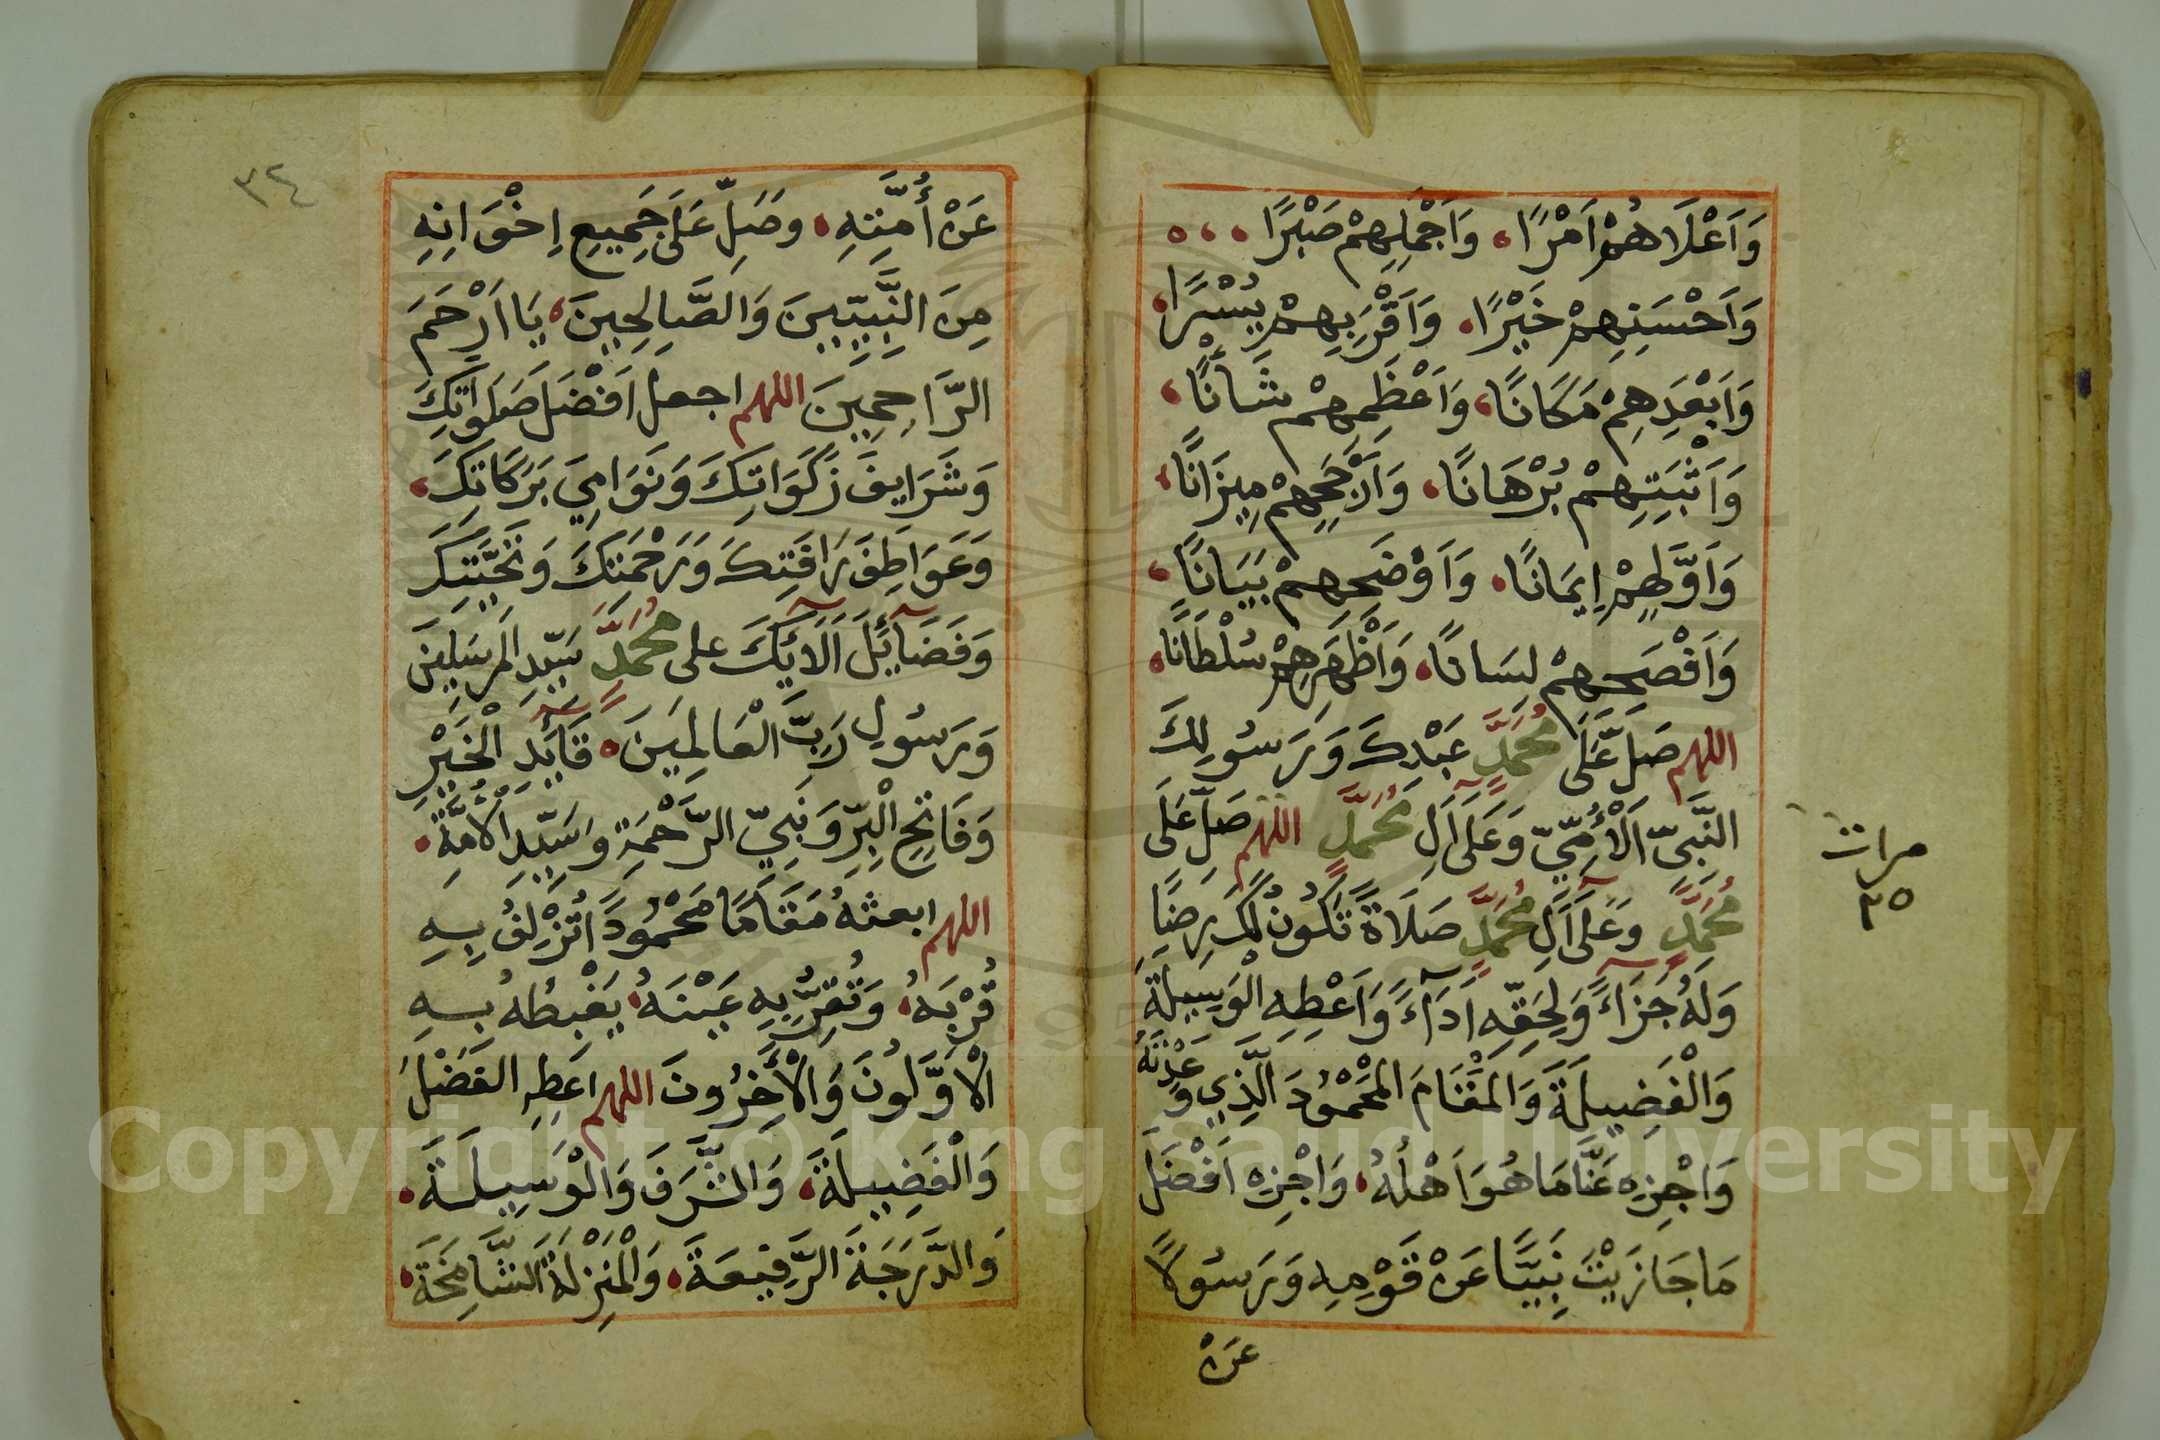 وَاَعْلَاهُمْ اَمْرًا، وَاَجْمَلِهِمْ صَبْرًا
وَاَحْسَنِهِمْ خَيْرًا، وَاَقْرَبِهِمْ يُسْرًا،
وَاَبْعَدِهِمْ مَكَانًا، وَاَعْظَمِهِمْ شَأنًا،
وَاَثْبَتِهِمْ بُرْهَانًا، وَاَرْجَحِهِمْ مِيزَانًا،
وَاَوَّلِهِمْ اِيمَانًا، وَاَوْضَحِهِمْ بَيَانًا،
وَاَفْصَحِهِمْ لِسَانًا، وَاَظْهَرِهِمْ سُلْطَانًا،
اللهم صَلِّ عَلَى مُحَمَّدٍ عَبْدِكَ وَرَسُولِكَ
النَّبِيِّ الْأُمِّيِّ وَعَلَى آلِ مُحَمَّدٍ اللهم صَلِّ عَلَى
مُحَمَّدٍ وَعَلَى آلِ مُحَمَّدٍ صَلَاةً تَكُونُ لَكَ رِضَاءً
وَلَهُ جَزَاءً وَلِحَقِّهِ اَدَآءً وَاَعْطِهِ الْوَسِيلَةَ
وَالْفَضِيلَةَ وَالْمَقَامَ الْمَحْمُودَ الَّذِي وَعَدْتَهُ
وَاجْزِهِ عَنَّا مَا هُوَ اَهْلُهُ، وَاجْزِهِ اَفْضَلَ
مَا جَازَيْتَ نَبِيًّا عَنْ قَوْمِهِ وَرَسُولًا
عَنْ
مرات
٣٥
٣٤
عَنْ أُمَّتِهِ، وصَلِّ عَلَى جَمِيعِ اِخْوَانِهِ
مِنَ النَّبِيِّينَ وَالصَّالِحِينَ، يَا اَرْحَمَ
الرَّاحِمِينَ اللهم اجعل اَفْضَلَ صَلَوَاتِكَ
وَشَرَايِفَ زَكَوَاتِكَ وَنَوَامِيَ بَرَكَاتِكَ،
وَعَوَاطِفَ رَافَتِكَ وَرَحْمَتِكَ وَتَحِيَّتِكَ
وَفَضَآئِلَ آلَائِكَ على مُحَمَّدٍ سَيِّدِ الْمُرْسَلِينَ
وَرَسُولِ رَبِّ الْعَالَمِينَ، قَآئِدِ الْخَيْرِ
وَفَاتِحِ الْبِرِّ وَنَبِيِّ الرَّحْمَةِ وسَيِّدِ الْأُمَّةِ،
اللهم ابعثهُ مَقَامًا مَحْمُودًا تُزْلِفُ بِهِ
قُرْبَهُ، وَتُقِرُّ بِهِ عَيْنَهُ، يَغْبِطُهُ بِهِ
الْاَوَّلُونَ وَالْآخِرُونَ اللهم اَعطِهِ الفَضْلَ
وَالْفَضِيلَةَ، وَالشَّرَفَ وَالْوَسِيلَةَ،
وَالدَّرَجَةَ الرَّفِيعَةَ، وَالْمَنْزِلَةَ الشَّامِخَةَ،
Copyright © King Saud University